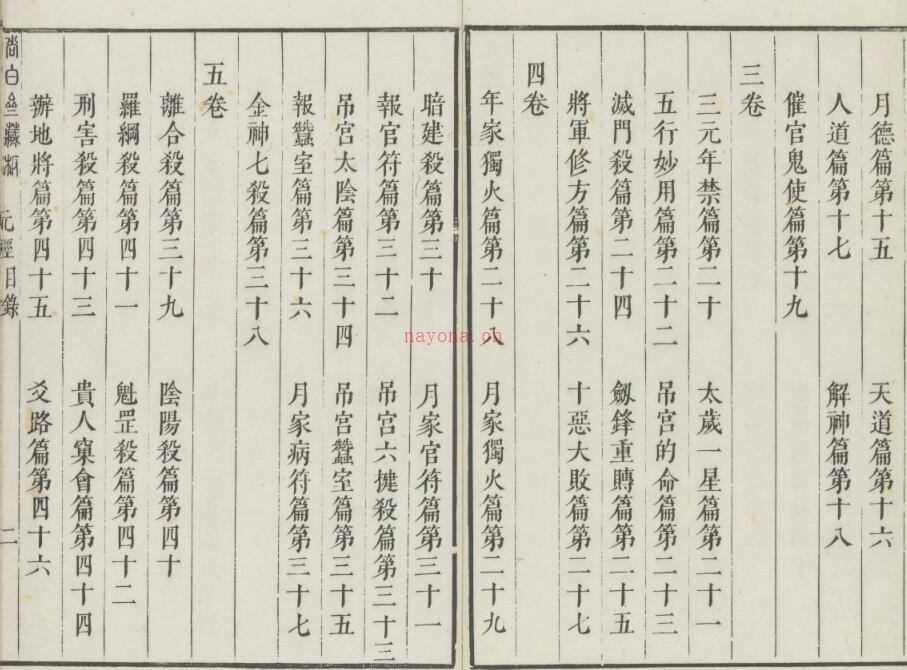 月德篇第十五　天道篇第十六
人道篇第十七　解神篇第十八
催官鬼使篇第十九
三卷
三元年禁篇第二十　太歲一星篇第二十一
五行妙用篇第二十二　吊宮的命篇第二十三
滅門殺篇第二十四　劔鋒重賻篇第二十五
將軍修方篇第二十六　十惡大敗篇第二十七
四卷
年家獨火篇第二十八　月家獨火篇第二十九
暗建殺篇第三十　月家官符篇第三十一
報官符篇第三十二　吊宮六揵殺篇第三十三
吊宮太陰篇第三十四　吊宮蠶室篇第三十五
報蠶室篇第三十六　月家病符篇第三十七
金神七殺篇第三十八
五卷
離合殺篇第三十九　陰陽殺篇第四十
羅綱殺篇第四十一　魁罡殺篇第四十二
刑害殺篇第四十三　貴人窠會篇第四十四
辦地將篇第四十五　爻路篇第四十六
白　藏　元經目錄　二
nayona.cn